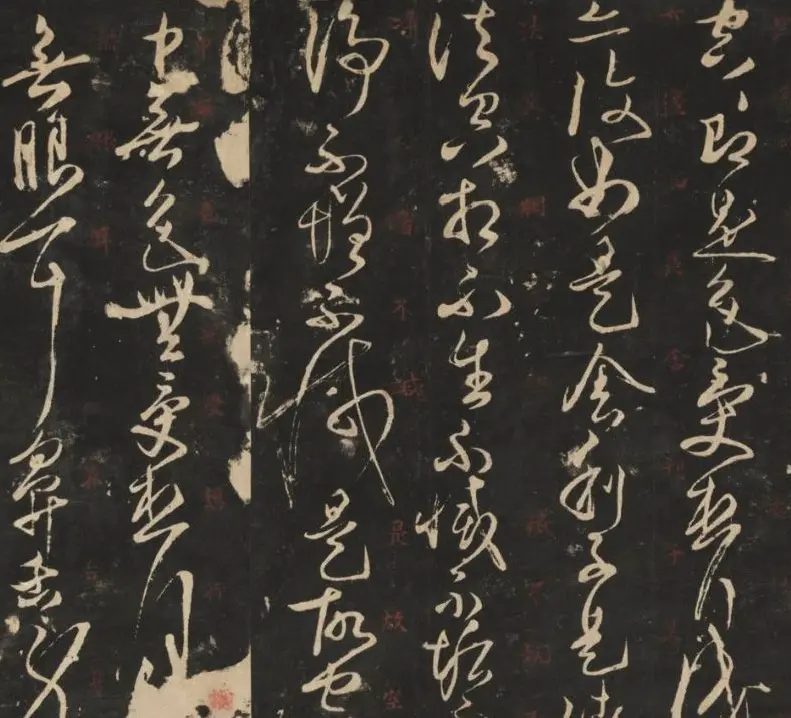 空即是色受想行識
亦復如是舍利子是諸
法空相不生不滅不垢不
淨不增不減是故空
中無色無受想行
無眼耳鼻舌身